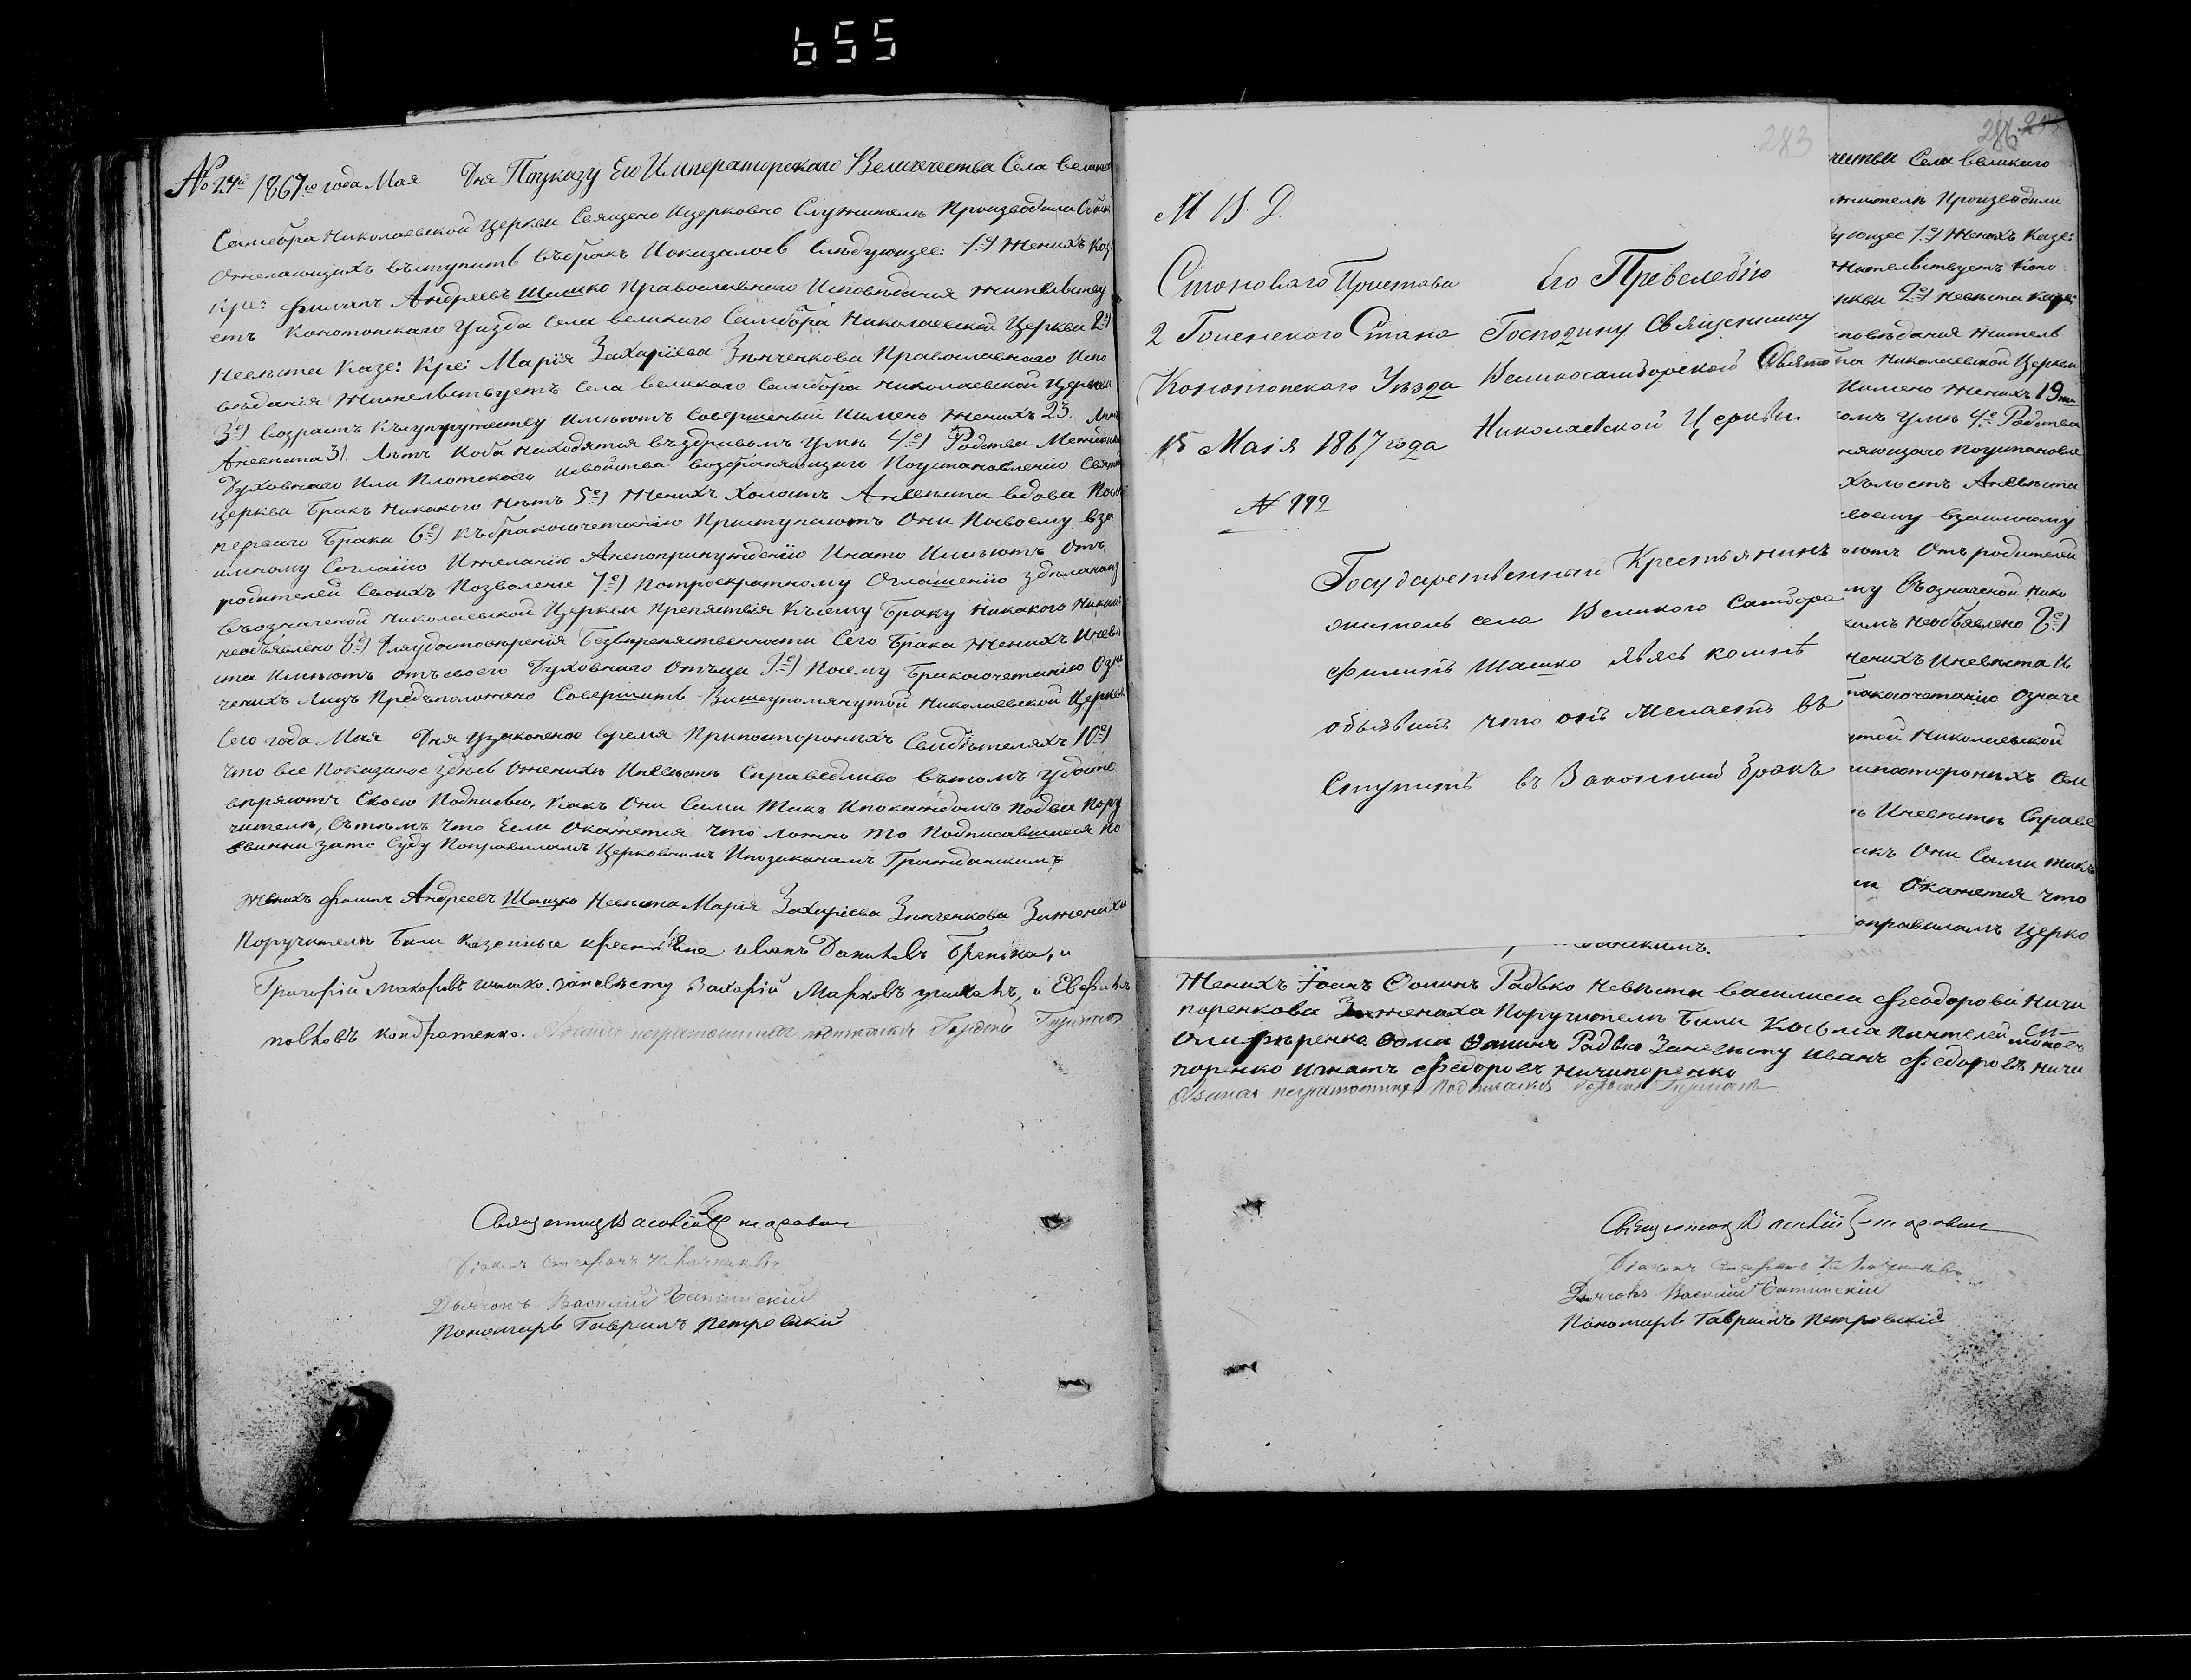 655
№ 24й 1867го года Мая Дня Поуказу Его Императорскаго Величества Села великаго
Самбора Николаевской Церкви Священо Ицерковно Служители Производили
Ожелающихъ въступить въбракъ Иоказалось Слѣдующее: 1е) Женихъ Каз:
Кре: филипъ Андреевъ Шашко Православнаго Исповѣдания жительству
етъ Конотопскаго Уизда Села великаго Самбора Николаевской Церкви 2е)
Невѣста Казе: Кре: Марія Захаріева Зѣнченкова Православнаго Испо
вѣданія Жительствуетъ Села великаго Самбора Николаевской Церкви
3е) возрастъ Къ супружеству Имѣютъ Совершеный Имено Женихъ 23. лѣтъ
Аневѣста 31. Лѣтъ Иоба Находятся въздравомъ Умѣ 4е) Родства Между ими
Духовнаго Или Плотскаго Исвойства возбраняющаго Поустановленію Святой
Церкви Бракъ Никакого Нѣтъ 5е) Женихъ холостъ Аневѣста вдова После
перваго Брака 6е) Къбракосочетанію Приступаютъ Они Посвоему вза
имному Согласію Ижеланію Анепопринужденію Инато Имѣютъ Отъ
родителей Своихъ Позволение 7е) Потроекратному Оглашению здѣланому
Въозначеной Николаевской Церкви Препятствія Къ сему Браку Никакого Никимъ
необъявлено 8е) Дляудостоверенія Безпрепятственности Сего Брака Женихъ Иневѣ
ста Имѣютъ отъсвоего Духовнаго Отъца 9е) Посему Бракосочетанію Озна
ченихъ Лицъ Предъположено Совершить Вишеупомянутой Николаевской Церкви
Сего года Мая Дня Узаконеное время Припосторонихъ Свидѣтеляхъ 10е)
Что все Показаное здѣсь Оженихѣ Иневѣстѣ Справедливо вътомъ удосто
вѣряютъ Своею Подписью, Какъ Они Сами Такъ Ипокаждомъ Подва Пору
чителя, Сътѣмъ Что Если Окажется Что ложно то Подписавшиеся По
винни зато Суду Поправиламъ Церковнимъ Ипозаконамъ Гражданскимъ
Женихъ филипъ Андреевъ Шашко Невѣста Марія Захаріева Зѣнченкова Зажениха
Поручители Били Казенные крестьяне иванъ Даниловъ Бренька, и
Григорій Макаровъ шашко. заневѣсту Захарій Марковъ
повловъ кондратенко.
Священник Василій
Діаконъ Стефанъ
Дьячокъ Василий
Пономарь Гавриилъ Петровский
283
М. В. Д.
Становаго Пристава
2 Стана
Конотопскаго Уѣзда
15 Маія 1867 года
№ 999
Его Превелебію
Господину Священнику
Великосамборской Свято
Николаевской Церкви.
Государственный Крестьянинъ
житель села Великого Самбора
филипъ Шашко явясь комнѣ
объявилъ что онъ желаетъ въ
Ступить въ Законний бракъ
286
чества Села великаго
жители Производили
ующее 1е) Женихъ Казе:
жительствуетъ Коно
еркви 2е) невѣста Казе:
повѣдания житель
ра Николаевской Церкви
Имено Женихъ 19ти
омъ Умѣ 4е Родства
няющаго поустановле
холостъ Аневѣста
своему взаимному
ѣютъ Отъ родителей
му Въозначеной Нико
кимъ Необъявлено 8е)
Женихъ Иневѣста И
бракосочетанію Означе
утой Николаевской
ипосторонихъ Сви
ѣ Иневѣстѣ Справе
акъ Они Сами такъ
ли Окажется что
оправиламъ Церко
данскимъ.
Женихъ Іоанъ Фоминъ Радько Невѣста Василиса Феодорова Ничи
поренкова Зажениха Поручители Били Косьма Пантелей Си-
моновъ
Олиференко Фома Фоминъ Радько Заневѣсту Иванъ Федоровъ Ничи
поренко Игнатъ Федоровъ Ничипоренко
Священник Василій
Діаконъ Стефанъ
Дьячокъ Василий
Пономарь Гавриилъ Петровский